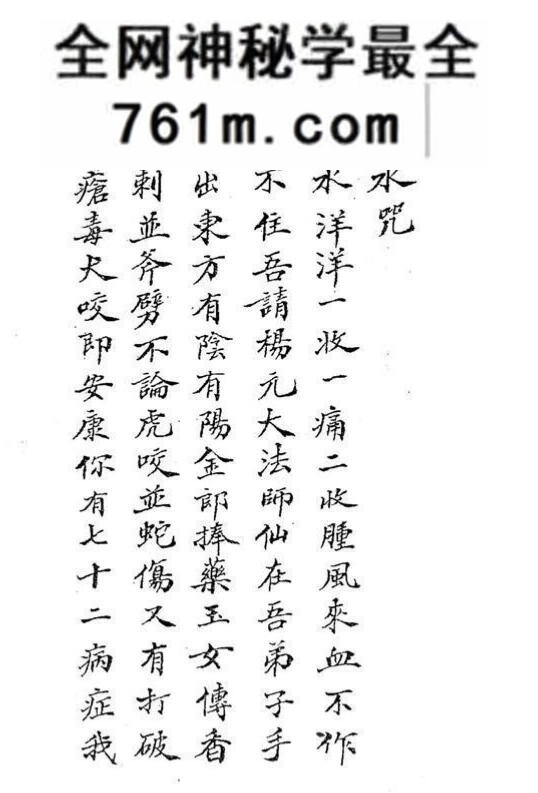 全网神秘学最全
761m.com
水咒
水洋洋一收一痛二收腫風來血不作
不住吾請楊元大法師仙在吾弟子手
出東方有陰有陽金郎捧藥玉女傳香
刺並斧劈不論虎咬並蛇傷又有打破
瘡毒犬咬即安康你有七十二病症我